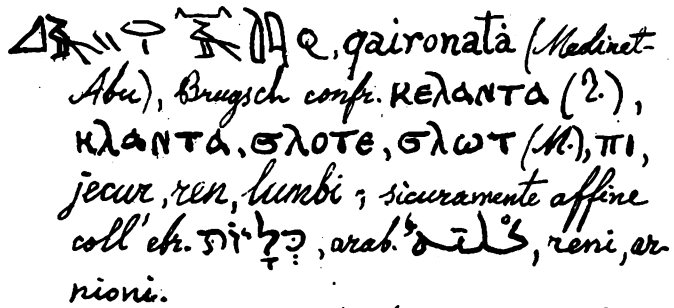 , qaironatà (Medinet-
Abu), Brugsch confr. ⲕⲉⲗⲁⲛⲧⲁ (?.),
ⲕⲗⲁⲛⲧⲁ, ϭⲗⲟⲧⲉ, ϭⲗⲱⲧ (M.), ⲡⲓ,
jecur, ren, lumbi; sicuramente affine
coll' ebr. כְּלָיוֹת, arab. كُلْيَة, reni, ar-
nioni.